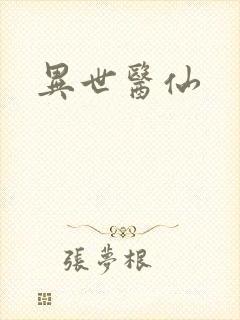 異世醫仙
張夢根